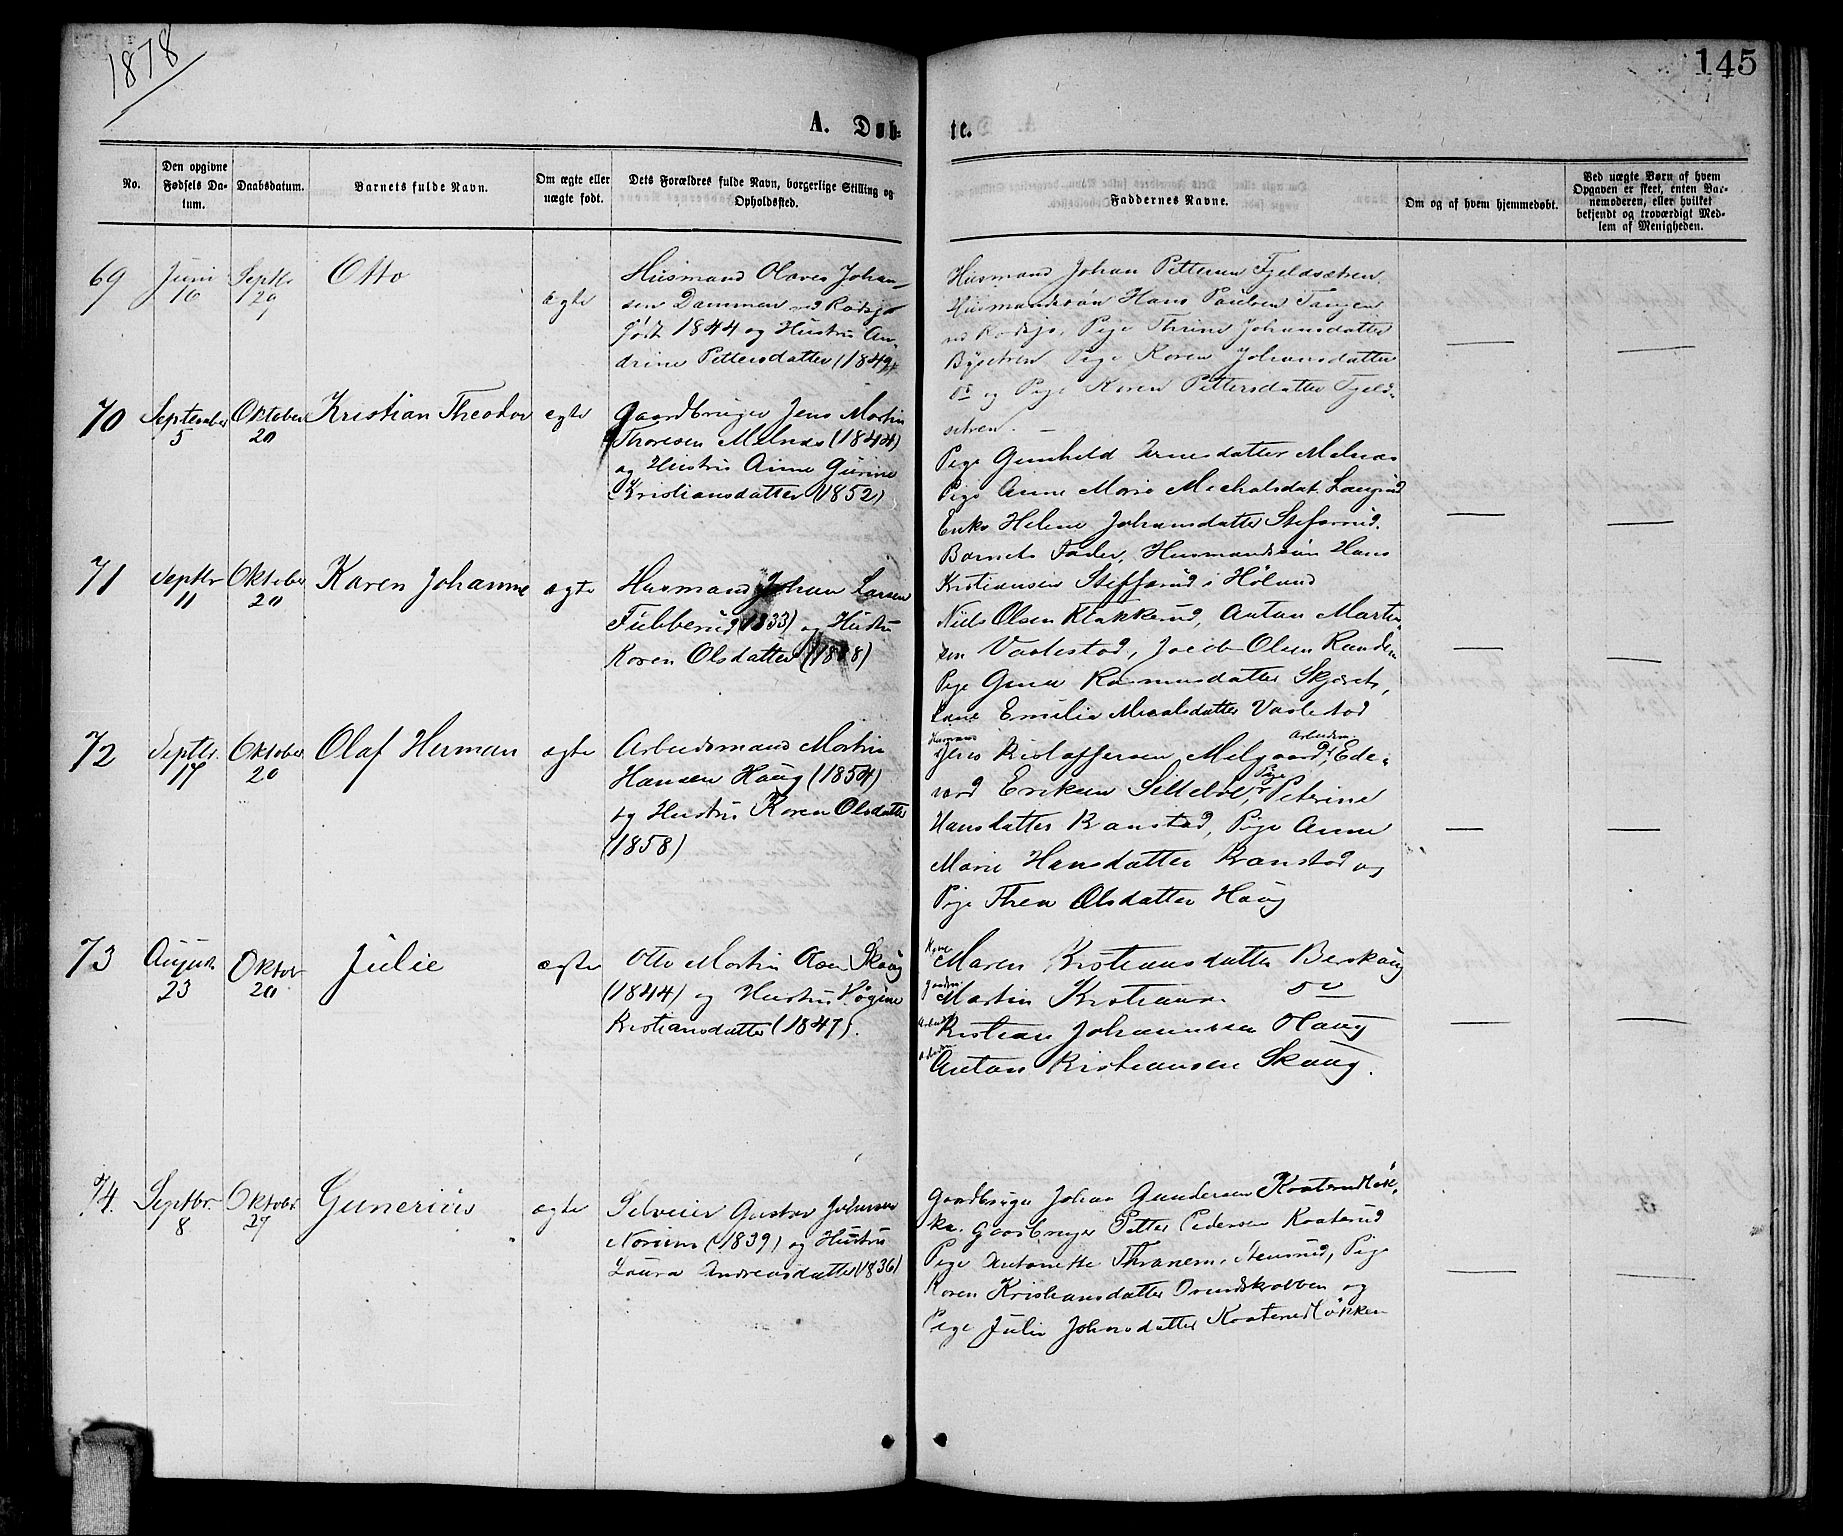 1878
145
A. Døb-
te.
No.
Den opgivne
Fødsels Da-
tum.
Daabsdatum.
Barnets fulde Navn.
Om ægte eller
uægte født.
Dets Forældres fulde Navn, borgerlige Stilling og
Opholdssted.
Faddernes Navne.
Om og af hvem hjemmedøbt.
Ved uægte Børn af hvem
Opgaven er skeet, enten Bar-
nemoderen, eller hvilket
bekjendt og troværdigt Med-
lem af Menigheden.
69
Juni
16
Septbr
29
Otto
ægte
Husmand Olaves Johan-
sen Dammen ved Rødsjø
født 1844 og Hustru An-
drine Pettersdatter (1849)
Husmand Johan Pettersen Fjeldsætren
Husmandssøn Hans Paulsen Tangen
ved Rødsjø, Pige Thrine Johansdatter
Bysetren Pige Karen Johansdatter
do og Pige Karen Pettersdatter Fjeld-
setren.
70
September
5
Oktober
20
Kristian Theodor
ægte
Gaardbruger Jens Martin
Thoresen Melnæs (1844)
og Hustru Anne Gurine
Kristiansdatter (1852)
Pige Gunhild Arnesdatter Melnæs
Pige Anne Marie Michalsdat. Langrud
Enke Helene Johansdatter Steffarud.
Barnets Fader, Husmandssøn Hans
Kristiansen Steffarud i Høland
71
Septbr
11
Oktober
20
Karen Johanne
ægte
Husmand Johan Larsen
Tubberud (1833) og Hustru
Karen Olsdatter
Niels Olsen Klakkerud, Anton Martin-
sen Vastestad, Jacob Olsen Randem
Pige Gina Rasmusdatter
Kone Emilie Micalsdatter Vastestad
72
Septbr.
17
Oktober
20
Olaf Herman
ægte
Arbeidsmand Martin
Hansen Haug (1854)
og Hustru Karen Olsdatter
(1858)
Husmand
Arbeidsm.
Jens Kristoffersen Melgaard, Ed-
vard Eriksen Pige Petrine
Hansdatter Ranstad, Pige Anne
Marie Hansdatter Ranstad og
Pige Thea Olsdatter Haug
73
August
23
Oktobr
20
Julie
ægte
Otto Martin Olsen Skaug
(1844) og Hustru
Kristiansdatter (1847).
Kone
Maren Kristiansdatter Berskaug
Martin Kristians. do
Kristian Johannessen Haug
Anton Kristiansen Skaug.
74.
Septbr.
8
Oktober
27
Gunerius
ægte
Selveier Gustav Johnsen
Norum (1839) og Hustru
Laura Andreasdatter (1836)
Gaardbruger Johan Gundersen Kraaterudløk-
ka. Gaardbruger Petter Pedersen Kraaterud
Pige Antonette Thranem. Stensrud, Pige
Karen Kristiansdatter Ovindskrobben og
Pige Julie Johnsdatter Kraaterudløkken
3.